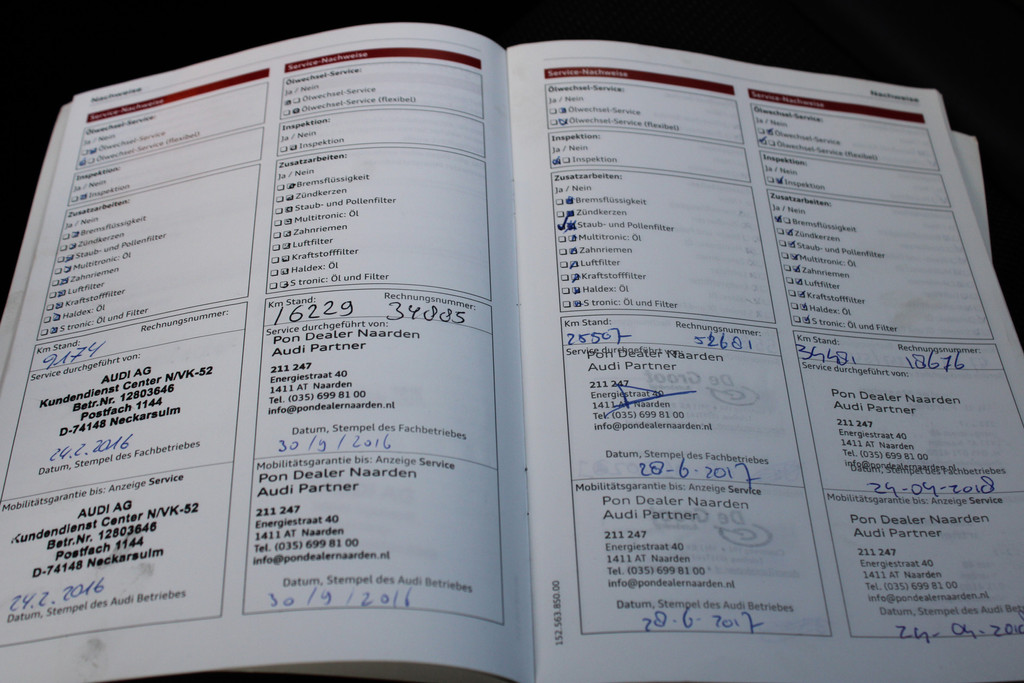 Nachweise
Service-Nachweise
Ölwechsel-Service:
Ja / Nein
Ölwechsel-Service
Ölwechsel-Service (flexibel)
Inspektion:
Ja / Nein
Inspektion
Zusatzarbeiten:
Ja / Nein
Bremsflüssigkeit
Zündkerzen
Staub- und Pollenfilter
Multitronic: Öl
Zahnriemen
Luftfilter
Kraftstofffilter
Haldex: Öl
S tronic: Öl und Filter
Km Stand:
Rechnungsnummer:
9174
Service durchgeführt von:
AUDI AG
Kundendienst Center N/VK-52
Betr.Nr. 12803646
Postfach 1144
D-74148 Neckarsulm
24.2.2016
Datum, Stempel des Fachbetriebes
Mobilitätsgarantie bis: Anzeige Service
AUDI AG
Kundendienst Center N/VK-52
Betr.Nr. 12803646
Postfach 1144
D-74148 Neckarsulm
24.2.2016
Datum, Stempel des Audi Betriebes
Service-Nachweise
Ölwechsel-Service:
Ja / Nein
Ölwechsel-Service
Ölwechsel-Service (flexibel)
Inspektion:
Ja / Nein
Inspektion
Zusatzarbeiten:
Ja / Nein
Bremsflüssigkeit
Zündkerzen
Staub- und Pollenfilter
Multitronic: Öl
Zahnriemen
Luftfilter
Kraftstofffilter
Haldex: Öl
S tronic: Öl und Filter
Km Stand: Rechnungsnummer:
16229 34885
Service durchgeführt von:
Pon Dealer Naarden
Audi Partner
211 247
Energiestraat 40
1411 AT Naarden
Tel. (035) 699 81 00
info@pondealernaarden.nl
Datum, Stempel des Fachbetriebes
30/9/2016
Mobilitätsgarantie bis: Anzeige Service
Pon Dealer Naarden
Audi Partner
211 247
Energiestraat 40
1411 AT Naarden
Tel. (035) 699 81 00
info@pondealernaarden.nl
Datum, Stempel des Audi Betriebes
30/9/2016
Service-Nachweise
Ölwechsel-Service:
Ja / Nein
Ölwechsel-Service
Ölwechsel-Service (flexibel)
Inspektion:
Ja / Nein
Inspektion
Zusatzarbeiten:
Ja / Nein
Bremsflüssigkeit
Zündkerzen
Staub- und Pollenfilter
Multitronic: Öl
Zahnriemen
Luftfilter
Kraftstofffilter
Haldex: Öl
S tronic: Öl und Filter
Km Stand: Rechnungsnummer:
25507 52681
Service durchgeführt von:
Pon Dealer Naarden
Audi Partner
211 247
Energiestraat 40
1411 AT Naarden
Tel. (035) 699 81 00
info@pondealernaarden.nl
Datum, Stempel des Fachbetriebes
28-6-2017
Mobilitätsgarantie bis: Anzeige Service
Pon Dealer Naarden
Audi Partner
211 247
Energiestraat 40
1411 AT Naarden
Tel. (035) 699 81 00
info@pondealernaarden.nl
Datum, Stempel des Audi Betriebes
28-6-2017
152.563.850.00
Nachweise
Service-Nachweise
Ölwechsel-Service:
Ja / Nein
Ölwechsel-Service
Ölwechsel-Service (flexibel)
Inspektion:
Ja / Nein
Inspektion
Zusatzarbeiten:
Ja / Nein
Bremsflüssigkeit
Zündkerzen
Staub- und Pollenfilter
Multitronic: Öl
Zahnriemen
Luftfilter
Kraftstofffilter
Haldex: Öl
S tronic: Öl und Filter
Km Stand: Rechnungsnummer:
34481 18676
Service durchgeführt von:
Pon Dealer Naarden
Audi Partner
211 247
Energiestraat 40
1411 AT Naarden
Tel. (035) 699 81 00
info@pondealernaarden.nl
Datum, Stempel des Fachbetriebes
24-04-2018
Mobilitätsgarantie bis: Anzeige Service
Pon Dealer Naarden
Audi Partner
211 247
Energiestraat 40
1411 AT Naarden
Tel. (035) 699 81 00
info@pondealernaarden.nl
Datum, Stempel des Audi Betriebes
24-04-2018